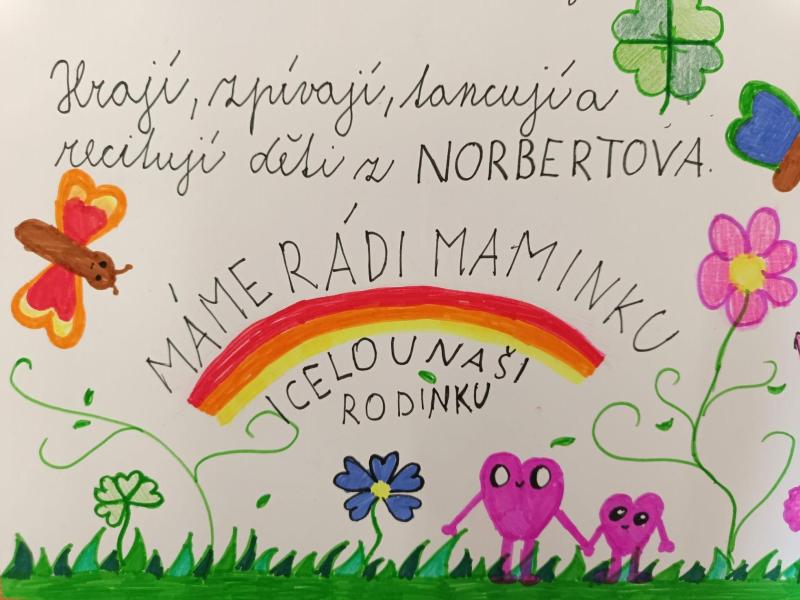 Hrají, zpívají, tancují a
recitují děti z NORBERTOVA.
MÁME RÁDI MAMINKU
I CELOU NAŠI
RODINKU